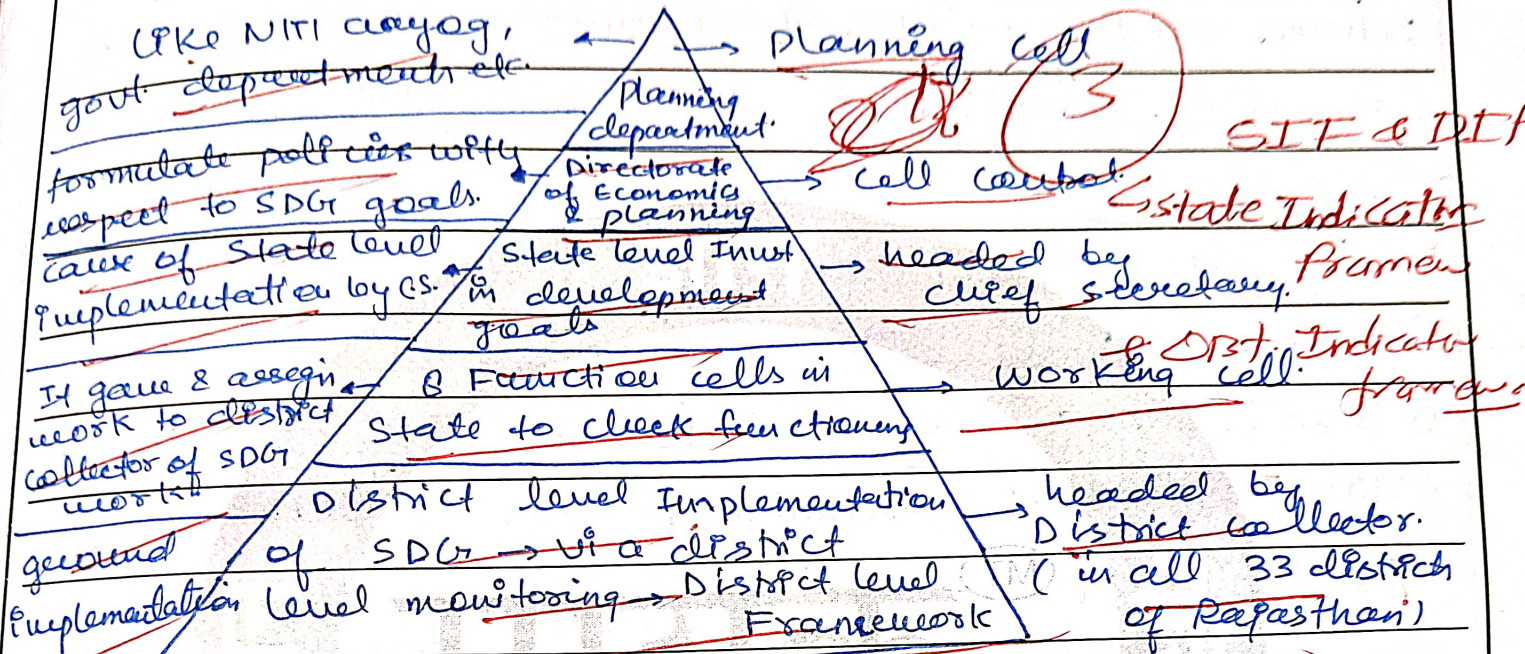 Like NITI aayog,
govt. department etc.
Planning cell
3
Planning
department.
SIF & DIF
formulate policies with
respect to SDG goals.
Directorate
of Economics
& planning
cell
State Indicator
cause of State level
implementation by CS.
State level
in development
goals
headed by
chief secretary.
Framew
& Dist. Indicator
framew
It gave & assegin
work to district
collector of SDG
work
8 Function cells in
State to check functioning
working cell.
ground
implementation
District level Implementation
of SDG → via district
level monitoring → District level
Framework
headed by
District collector.
(in all 33 districts
of Rajasthan)